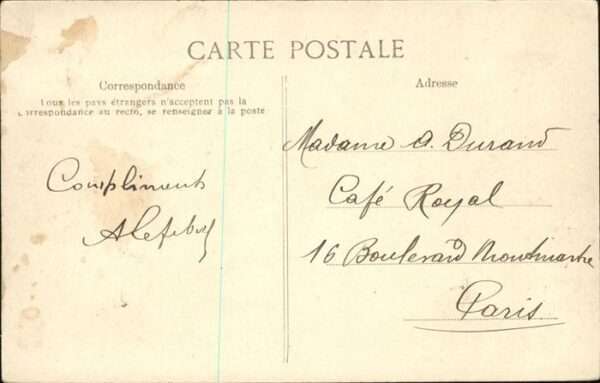 CARTE POSTALE
Correspondance
Tous les pays étrangers n'acceptent pas la
correspondance au recto, se renseigner à la poste
Compliments
ALefebv
Adresse
Madame A. Durand
Café Royal
16 Boulevard Montmartre
Paris